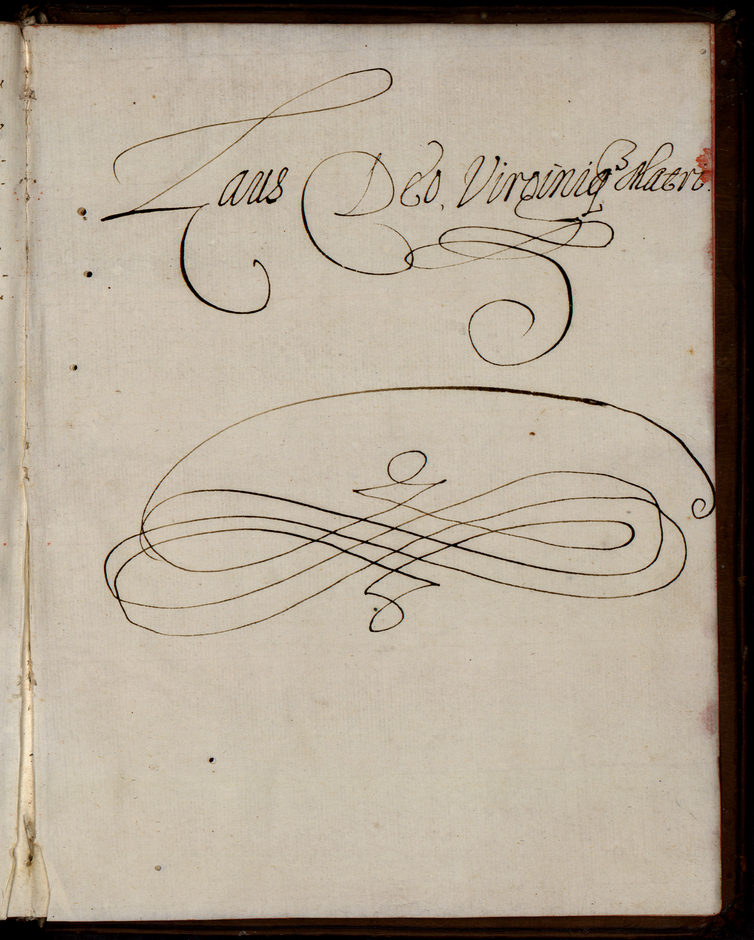 Laus Deo, Virginiq3 Matri.